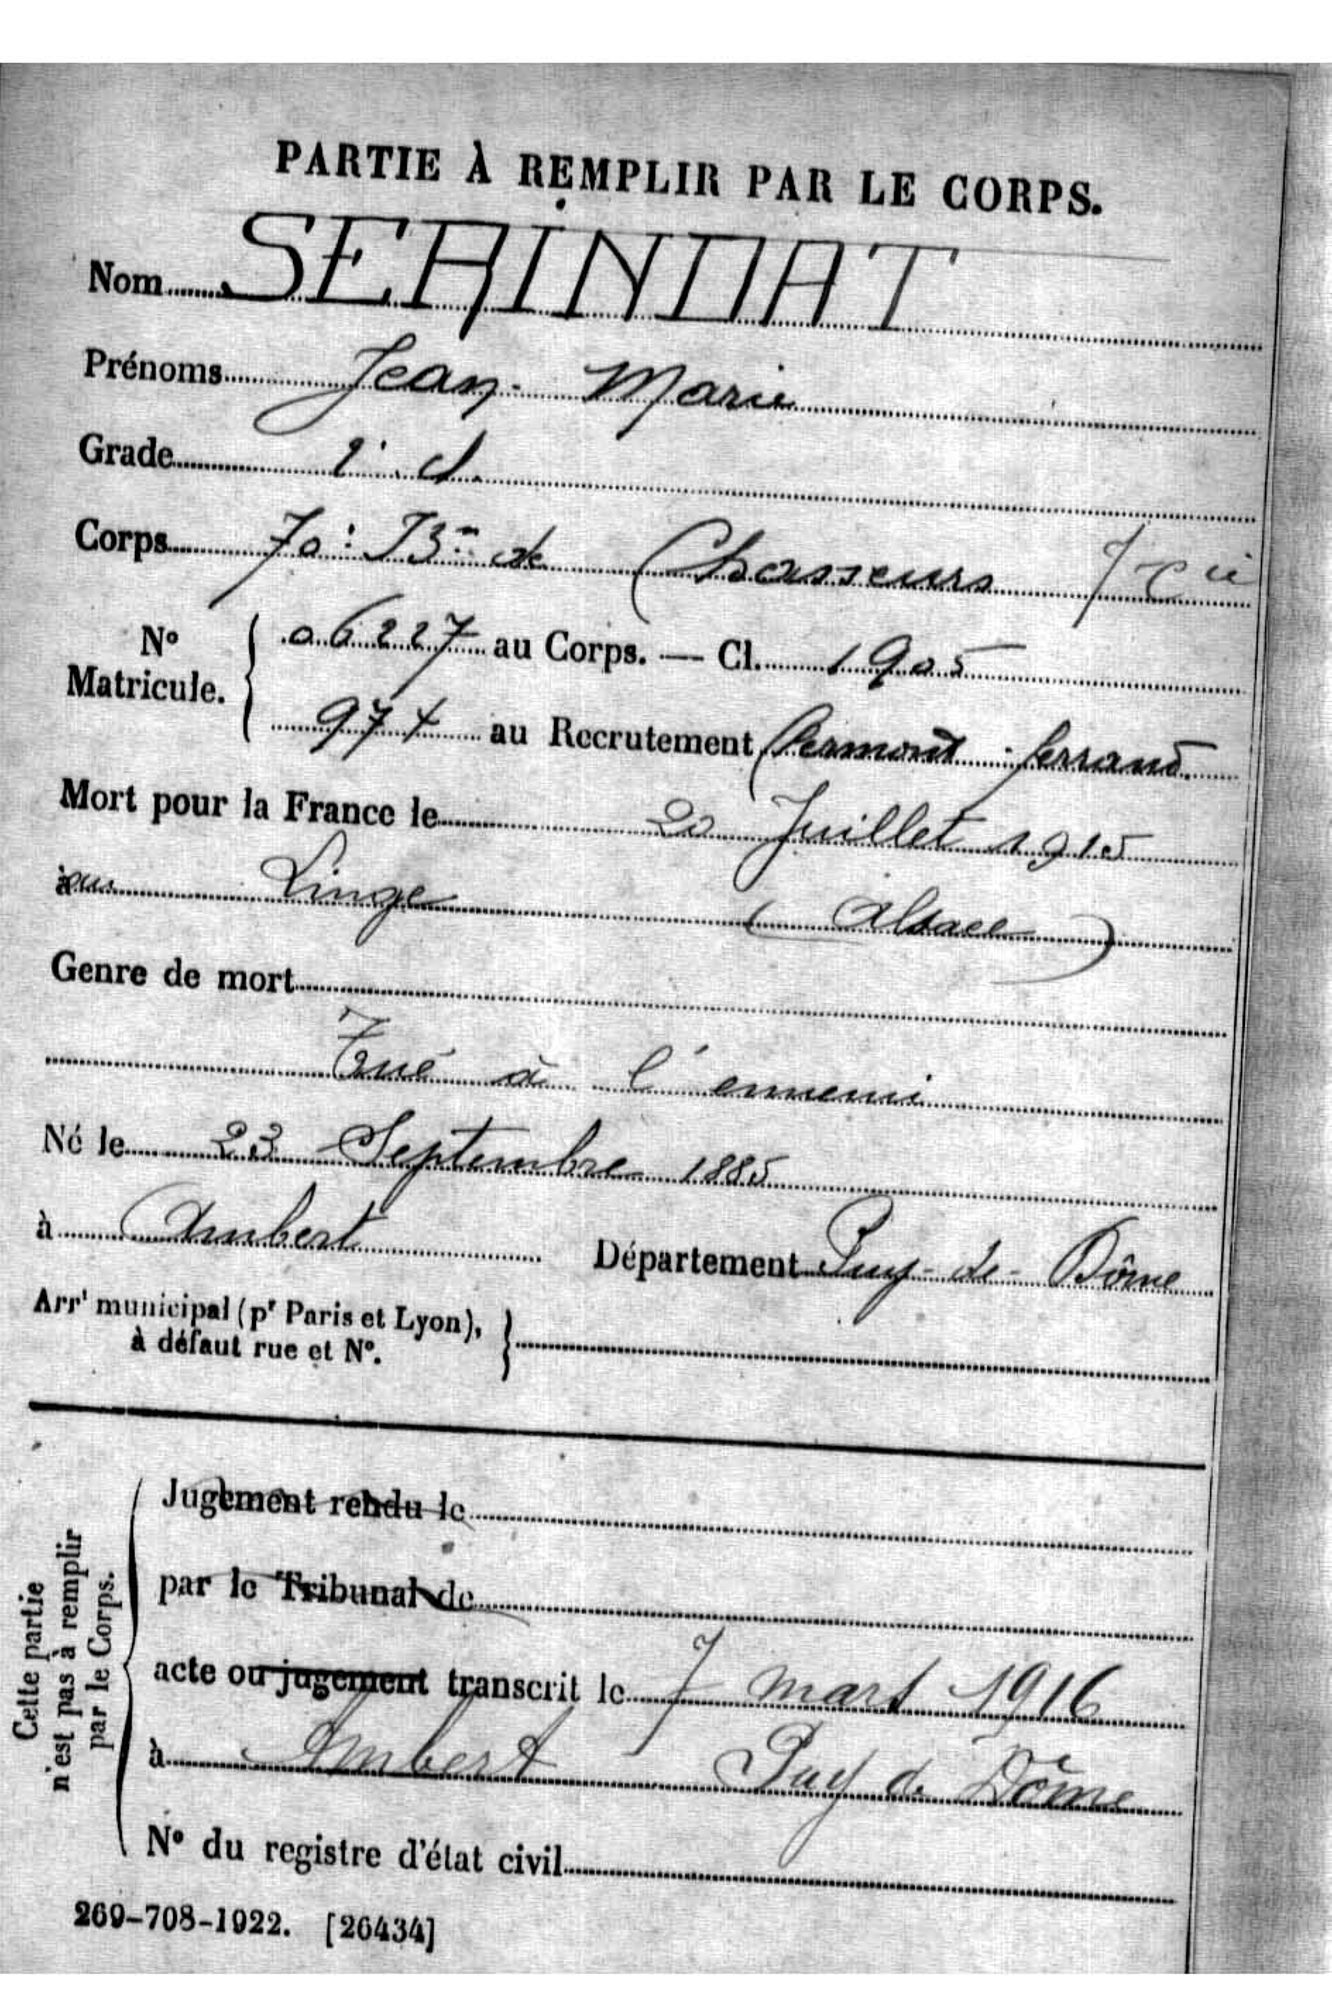 PARTIE À REMPLIR PAR LE CORPS.
Nom SERINDAT
Prénoms Jean-Marie
Grade 2e cl.
Corps 70e Bon de Chasseurs 7e Cie
No Matricule. 06227 au Corps. — Cl. 1905
974 au Recrutement Clermont-ferrand
Mort pour la France le 20 Juillet 1915
au Linge (Alsace)
Genre de mort
Tué à l'ennemi
Né le 23 Septembre 1885
à Ambert Département Puy-de-Dôme
Arrt municipal (pr Paris et Lyon),
à défaut rue et No.
Cette partie n'est pas à remplir par le Corps.
Jugement rendu le
par le Tribunal de
acte ou jugement transcrit le 7 mars 1916
à Ambert Puy de Dôme
No du registre d'état civil
269-708-1922. [26434]